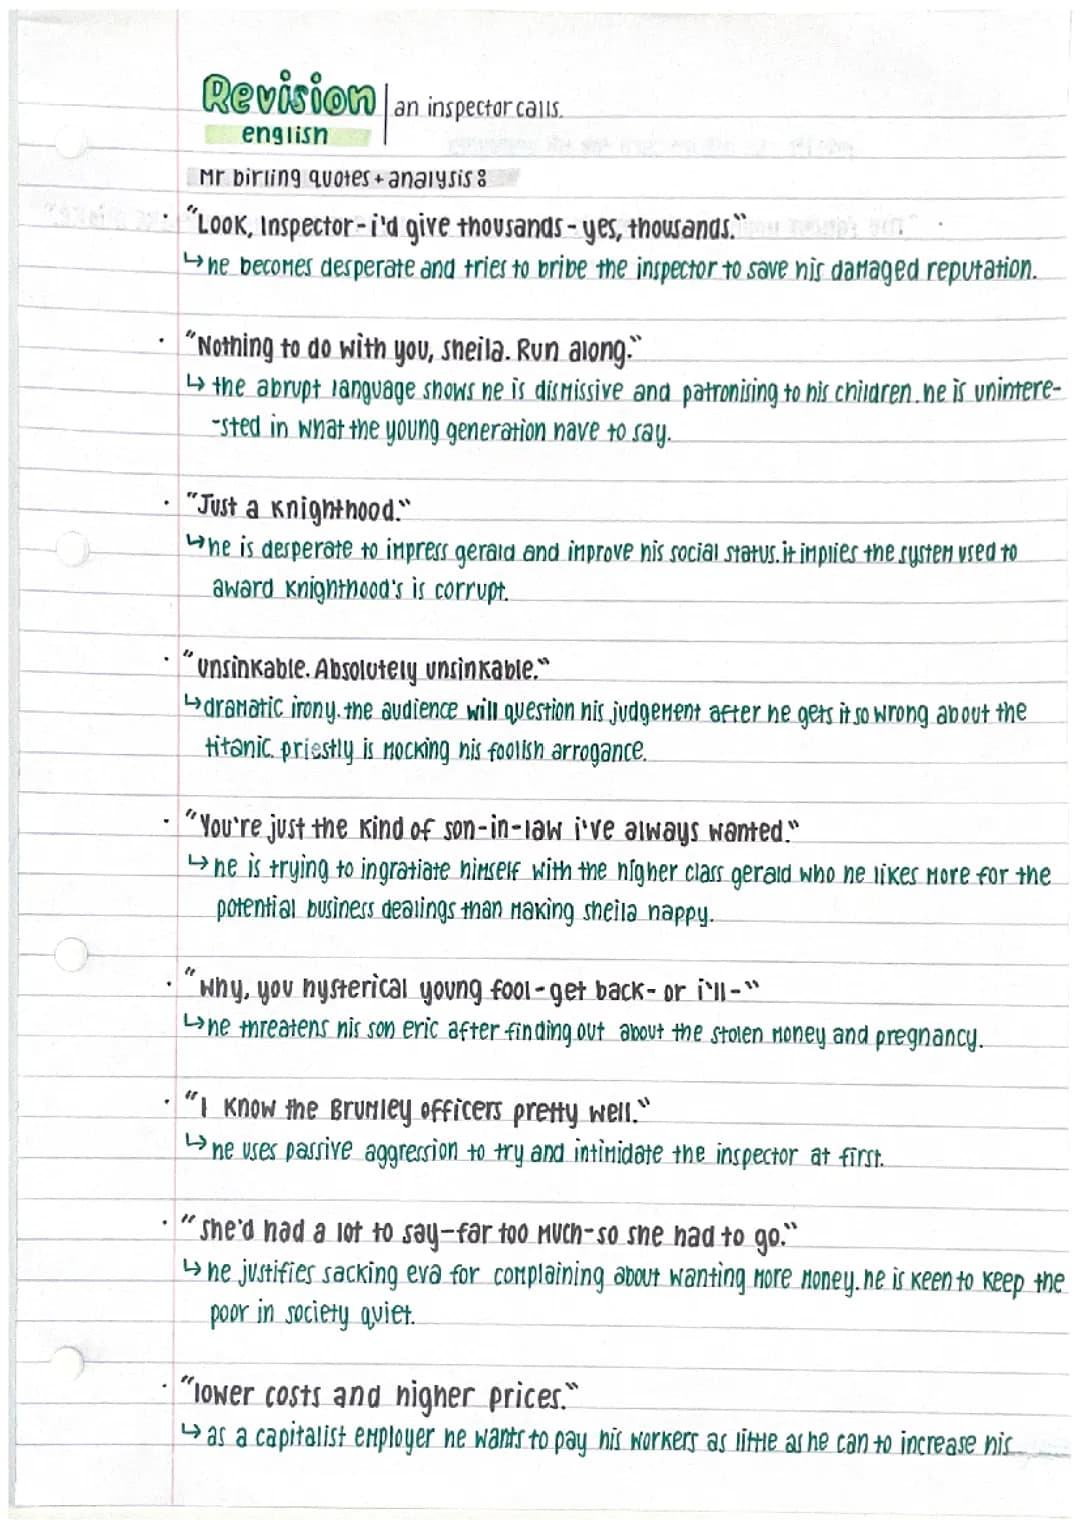 Revision
english
an inspector calls.
Mr birling quotes + analysis :
· "Look, Inspector - i'd give thousands - yes, thousands."
↳ he becomes desperate and tries to bribe the inspector to save his damaged reputation.
· "Nothing to do with you, sheila. Run along."
↳ the abrupt language shows he is dismissive and patronising to his children. he is unintere-
-sted in what the young generation have to say.
· "Just a knighthood."
↳ he is desperate to impress gerald and improve his social status. it implies the system used to
award knighthood's is corrupt.
· "unsinkable. Absolutely unsinkable."
↳ dramatic irony. the audience will question his judgement after he gets it so wrong about the
titanic. priestly is mocking his foolish arrogance.
· "You're just the kind of son-in-law i've always wanted."
↳ he is trying to ingratiate himself with the higher class gerald who he likes more for the
potential business dealings than making sheila happy.
· "why, you hysterical young fool - get back - or i'll -"
↳ he threatens his son eric after finding out about the stolen money and pregnancy.
· "I know the Brumley officers pretty well."
↳ he uses passive aggression to try and intimidate the inspector at first.
· "she'd had a lot to say - far too much - so she had to go."
↳ he justifies sacking eva for complaining about wanting more money. he is keen to keep the
poor in society quiet.
· "lower costs and higher prices."
↳ as a capitalist employer he wants to pay his workers as little as he can to increase his